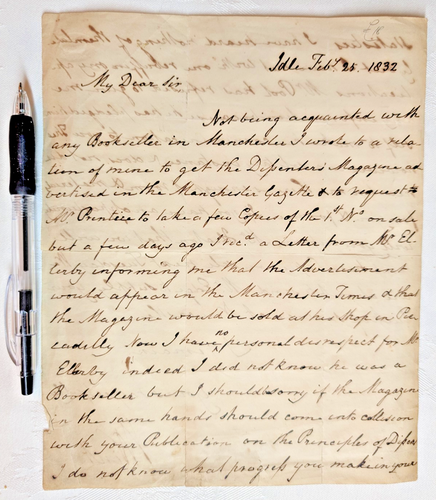 Idle Feby. 25. 1832
My Dear Sir
Not being acquainted with
any Bookseller in Manchester I wrote to a rela-
tion of mine to get the Dissenters Magazine ad
vertised in the Manchester Gazette & to request
Mr Prentice to take a few Copies of the 1st No. on sale
but a few days ago I recd. a Letter from Mr El-
lerby informing me that the Advertisement
would appear in the Manchester Times & that
the Magazine would be sold at his Shop in Pic
cadilly Now I have no personal disrespect for Mr
Ellerby indeed I did not know he was a
Bookseller but I should sorry if the Magazine
in the same hands should come into collision
with your Publication on the Principles of Dissen
I do not know what progress you make in your